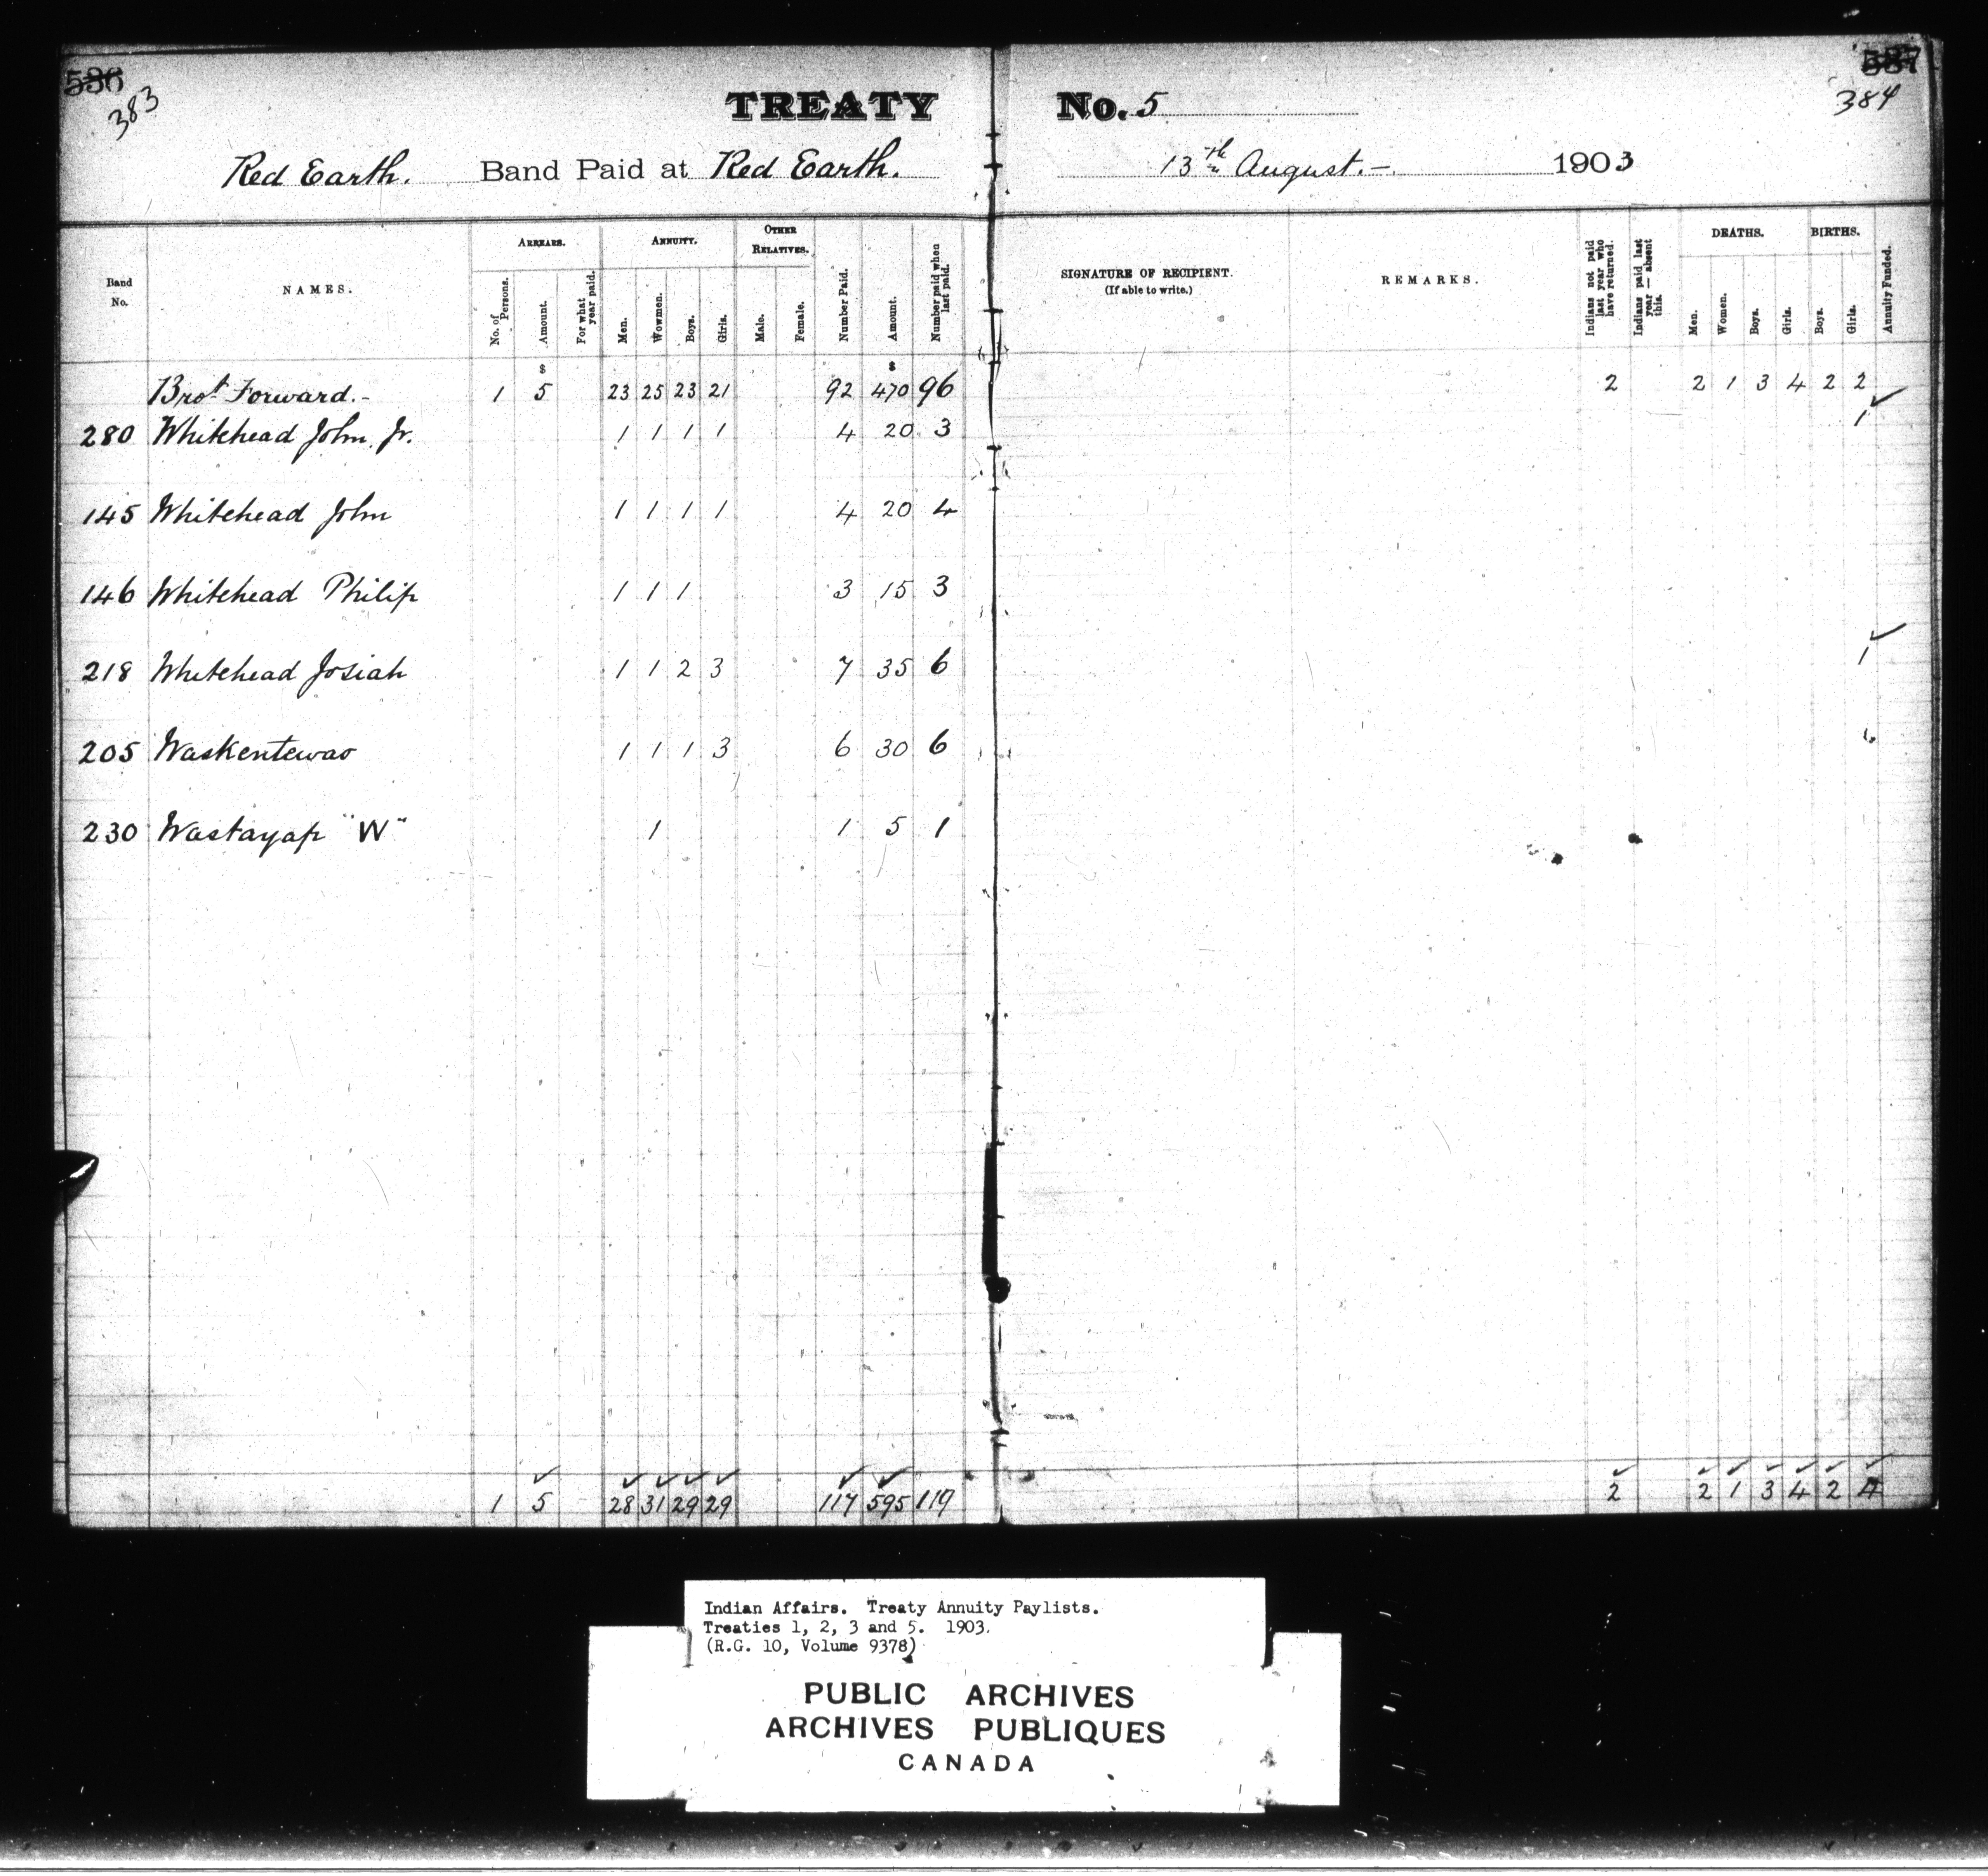 536 537
383 384
TREATY No. 5
Red Earth. Band Paid at Red Earth. 13th August. - 1903
Band No. NAMES. ARREARS. No. of Persons. Amount. For what year paid. ANNUITY. Men. Wowmen. Boys. Girls. OTHER RELATIVES. Male. Female. Number Paid. Amount. Number paid when last paid. SIGNATURE OF RECIPIENT. (If able to write.) REMARKS. Indians not paid last year who have returned. Indians paid last year — absent this. DEATHS. Men. Women. Boys. Girls. BIRTHS. Boys. Girls. Annuity Funded.
$ $
Brot Forward. - 1 5 23 25 23 21 92 470 96 2 2 1 3 4 2 2
280 Whitehead John Jr. 1 1 1 1 4 20 3 1 ✓
145 Whitehead John 1 1 1 1 4 20 4
146 Whitehead Philip 1 1 1 3 15 3
218 Whitehead Josiah 1 1 2 3 7 35 6 1 ✓
205 Waskentewao 1 1 1 3 6 30 6
230 Wastayap "W" 1 1 5 1
✓ ✓ ✓ ✓ ✓ ✓ ✓ ✓ ✓ ✓ ✓ ✓ ✓ ✓
1 5 28 31 29 29 117 595 119 2 2 1 3 4 2 4
Indian Affairs. Treaty Annuity Paylists.
Treaties 1, 2, 3 and 5. 1903.
(R.G. 10, Volume 9378)
PUBLIC ARCHIVES
ARCHIVES PUBLIQUES
CANADA